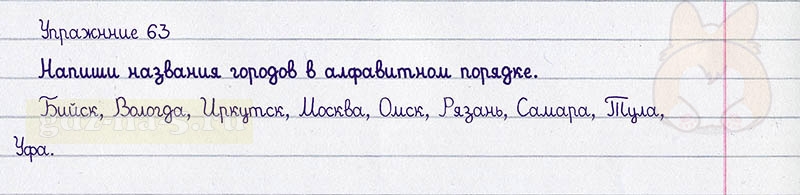 Упражнние 63
Напиши названия городов в алфавитном порядке.
Бийск, Вологда, Иркутск, Москва, Омск, Рязань, Самара, Тула,
Уфа.
guz-na-5.ru